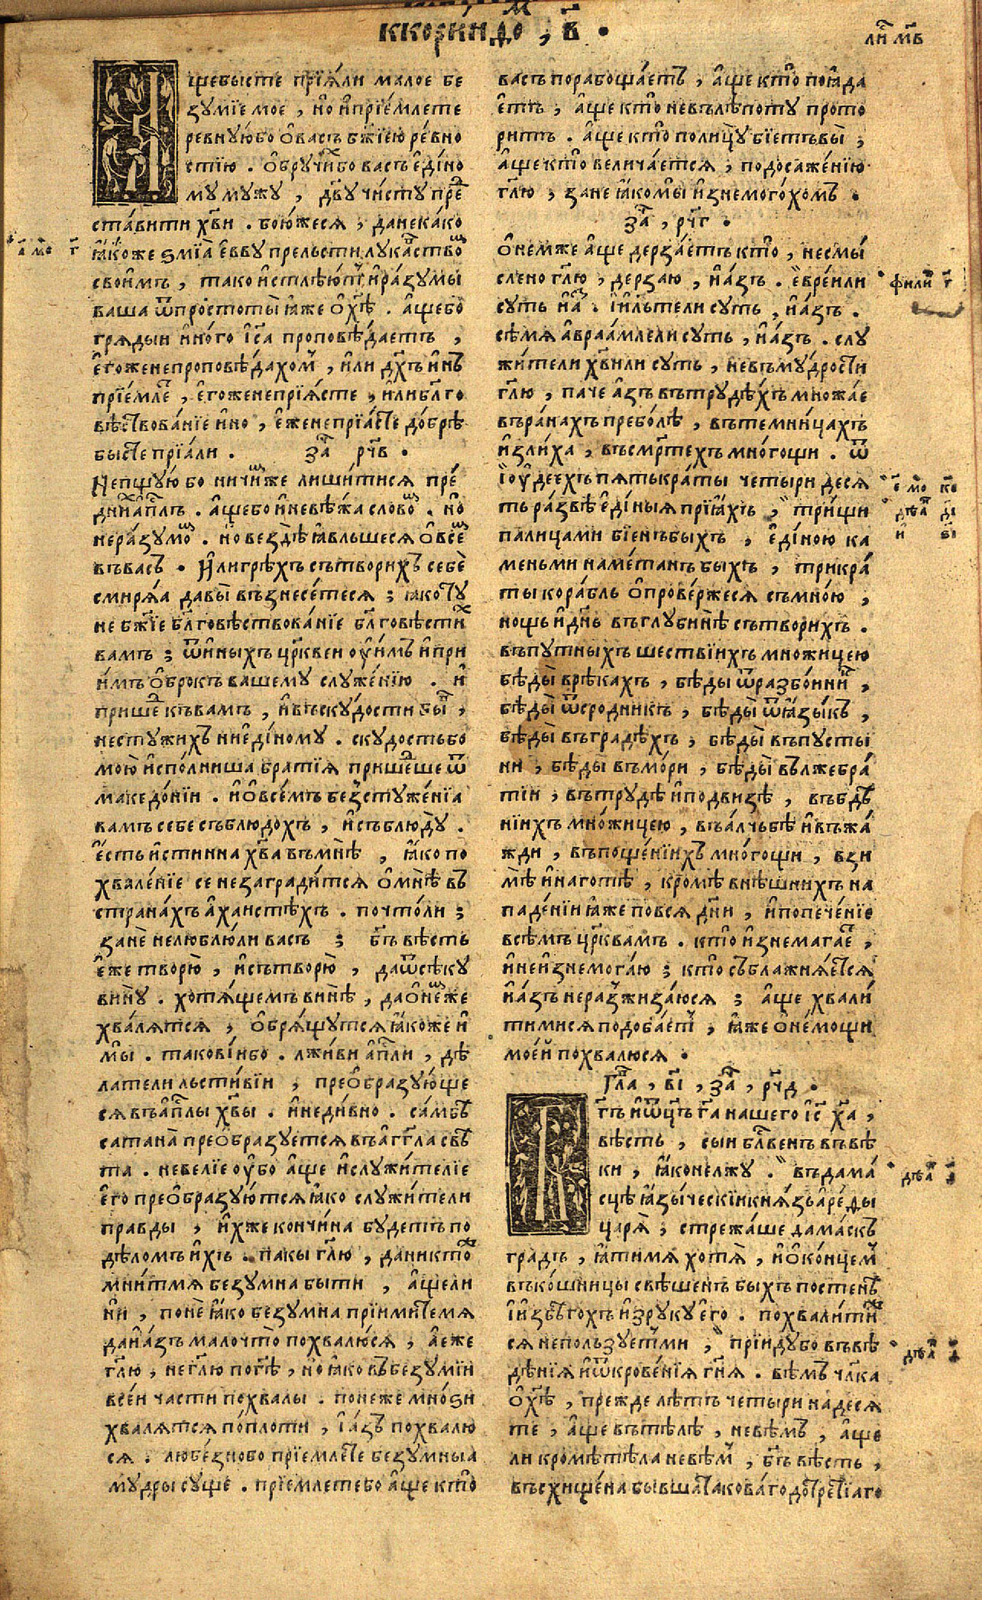 ккоринѳо , в҃ .
ли҃ мв
А҆щебысте прїѧ́ли малое бе
зꙋмїе мое , но и҆прїе́млете
ревнꙋ́юбо ѻ҆васъ бж҃їею ре́вно
стїю . ѻ҆брꙋчи́хбо васъ е҆ди́но
мꙋ мꙋжꙋ , дв҃ꙋ чи́стꙋ пре
ста́вити хв҃и . бою́жесѧ , данекако
ꙗ҆́коже ѕмїа̀ е҆́ввꙋ прельсти̂ лꙋка́вство
свои́мъ , тако и҆стлѣ́ютъ и҆ ра́зꙋмы
ваша ѿпростоты̀ ꙗ҆́же ѻ҆хѣ̃ . а҆́щебо
грѧды́и и҆́ного і҆с҃а проповѣ́даетъ ,
е҆гоженепроповѣ́дахом , и҆ли дх҃ъ и҆́нъ
прїе́млете , е҆гоженепрїѧ́сте , и҆либлг҃о
вѣ́ствованїе и҆́но , е҆́женепрїѧ́сте до́брѣ
бы́сте прїѧ́ли . за҃ рч҃в .
Непщꙋ́ю бо ничи́мже лиши́тисѧ пре́
дни̃ а҆пл҃ъ . а҆́щебо и҆невѣ́жа сло́вом . но
нера́зꙋмом . но вездѣ̀ ꙗ҆́вльшесѧ ѻ҆все́мъ
въва́съ . И҆лигрѣ́хъ сътвори́хъ себѐ
смирѧ́ѧ давы̀ възнесе́тесѧ ; ꙗ҆́котꙋ
не бж҃їе блг҃овѣ́ствова́нїе блг҃овѣсти́х
вамъ ; ѿи́ныхъ цр҃квеи оу҆и҆мъ и҆ при
и҆́мъ ѻ҆бро́къ вашемꙋ слꙋже́нїю . и҆
прише́д къвамъ , и҆ въскꙋ́дости бы́в ,
нестꙋжи́хъ ниеди́номꙋ . скꙋдостьбо
мою̀ и҆спо́лниша бра́тїѧ прише́дше ѿ
македо́нїи . и҆ ѻ҆всѐмъ безстꙋже́нїа
вамъ себе съблюдо́хъ , и҆ съблюдꙋ .
е҆́сть и҆́стинна хв҃а въмнѣ̀ , ꙗ҆́ко по
хвале́нїе се незагради́тсѧ ѻ҆мнѣ̀ въ
страна́хъ а҆ха́истѣхъ . почто́ли ;
занѐ нелюблю́ли васъ ; бг҃ъ вѣ́сть
е҆́же творю̀ , и҆ сътворю̀ , да ѿсѣкꙋ
винꙋ̀ . хотѧ́щемъ вины̀ , да ѻ҆не́мже
хвалѧ́тсѧ , ѻ҆брѧ́щꙋтсѧ ꙗ҆́коже и҆
мы̀ . такові́ибо . лжи́ви а҆пл҃и , дѣ́
латели льсти́вїи , преѻбразꙋ́юще
сѧ въа҆пл҃ы хв҃ы . и҆неди́вно . са́мбо
сатана̀ преѻбразꙋ́етсѧ въа҆гг҃ла свѣ
та . невелїе оу҆́бо а҆́ще и҆слꙋжи́телїе
е҆го̀ преѻбразꙋ́ютсѧ ꙗ҆́ко слꙋжи́тели
пра́вды , и҆́хже кончи́на бꙋ́детъ по
дѣло́мъ и҆́хъ . пакы гл҃ю , даникто́же
мни́тмѧ безꙋмна быти , а҆́щели
ни , понѐ ꙗ҆́ко безꙋмна прїими́темѧ
даи҆а҆зъ малочто̀ похвалю́сѧ , а҆е҆же
гл҃ю , негл҃ю погд҃ѣ , но ꙗ҆́ко въбезꙋ́мїи
всеи части похвалы . понеже мно́ѕи
хвалѧтсѧ попло́ти , і҆а҆зъ похвалю
сѧ : любе́зновo прїе́млете безꙋмныа
мꙋдры сꙋ́ще . прїе́млетебо а҆́ще кто̀
васъ порабоща́етъ , а҆́ще кто̀ поꙗ҆да
етъ , а҆́ще кто̀ невълѣпотꙋ прото
ритъ . а҆́ще кто̀ полицꙋ̀ бїе́тъвы ;
а҆́ще кто̀ велича́етсѧ , по досаже́нїю
гл҃ю , зане ꙗ҆комы̀ и҆знемого́хомъ .
за҃ , рч҃г .
Ѻ҆не́мже а҆́ще дерза́етъ кто̀ , несмы́
слено гл҃ю , дерзаю , и҆ а҆́зъ . е҆вре́или
сꙋть и҆ а҆з . і҆и҃льтѧне ли сꙋть , и҆ а҆́зъ .
сѣ́мѧ авраамлели сꙋть , и҆ а҆́зъ . слꙋ
жители хв҃и ли сꙋть , невъмꙋ́дрости
гл҃ю , паче а҆́зъ въ трꙋдѣ́хъ множа́е
въра́нахъ пребо́лѣ , въ темни́цахъ
и҆зли́ха , въсмр҃техъ мно́гощи . ѿ
і҆ꙋдеехъ пѧтькра́ты четыри десѧ
ть ра́звѣ е҆ди́ныѧ прїѧ́хъ , три́щи
палицами бїе́нъбыхъ , е҆ди́ною ка
меньми намѐтанъ быхъ , трикра́
ты кора́бль ѻ҆прове́ржесѧ съ мно́ю ,
нощь и҆ днь въглꙋбинѣ̀ сътвори́хъ .
въпꙋ́тныхъ ше́ствїихъ множи́цею
бѣ́ды́ врѣка́хъ , бѣ́ды ѿразбо́иник ,
бѣ́ды ѿсро́дникъ , бѣ́ды ѿꙗ҆зы́къ ,
бѣ́ды въ гра́дѣхъ , бѣ́ды въпꙋсты́
ни , бѣ́ды въмо́ри , бѣ́ды вължебра́
тїи , въ трꙋдѣ̀ и҆подви́зѣ , въбдѣ́
нїихъ мно́жицею , въа́лчьбѣ и҆въжа́
жди , въпоще́нїихъ мно́гощи , взи
мѣ̀ и҆наготѣ̀ , кромѣ внѣшнихъ на
паде́нїи ꙗ҆́же повсѧ̀ дн҃и , и҆попече́нїе
всѣмъ цр҃квамъ . кто̀ и҆знемага́е ,
и҆неи҆знемога́ю ; кто̀ съблажнѧ́етсѧ
и҆а҆́зъ неразжиза́юсѧ ; а҆́ще хвали́
тимисѧ подоба́етъ , ꙗ҆же ѻ҆не́мощи
моеи̂ похвалю́сѧ .
Гла҃ , в҃і , за҃ , рч҃д .
Бг҃ъ и҆ѿц҃ъ гд҃а нашего і҆с҃ ха҃ ,
вѣсть , сыи бл҃ве́нъ въвѣ
ки , ꙗ҆́ко нелжꙋ̀ . въ дама́
сцѣ ꙗ҆зы́ческїи кнѧ́зь а҆ре́ды
царѧ̀ ; стрежа́ше дама́скъ
градъ , ꙗ҆́тимѧ хотѧ̀ , и҆ ѻ҆ко́нцем
въко́шници свѣ́шенъ быхъ постенѣ̀
и҆ избѣгохъ и҆зрꙋкꙋ е҆го . похвали́ти
сѧ непользꙋетъ ми , прїи́дꙋбо въвѣ
дѣ́нїѧ и҆ѿкрове́нїѧ гн҃ѧ . вѣ́мъ чл҃ка
ѻ҆хѣ̃ , прежде лѣтъ четыри надесѧ
те , а҆́ще въ тѣлѣ , невѣмъ , а҆́ще
ли кромѣ тѣ́ла невѣ́м , бг҃ъ вѣ́сть ,
въсхище́на бывша таковаго до третїаго